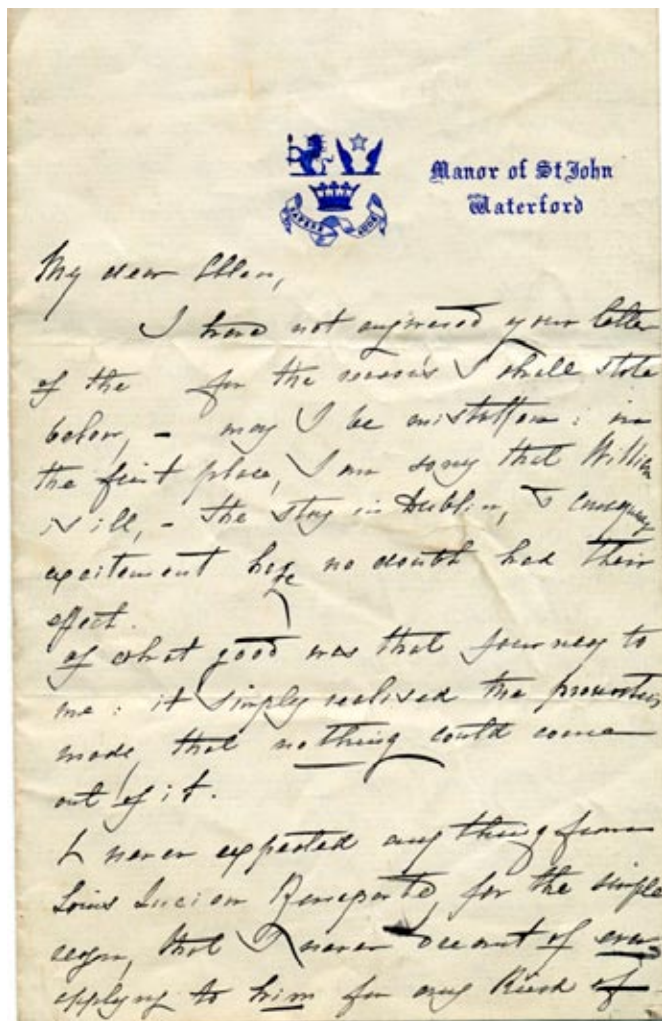 Manor of St John
Waterford
My dear Ellen,
I have not answered your letter
of the for the reasons I shall state
below, - may I be mistaken: in
the first place, I am sorry that William
is ill, - the stay in Dublin, &
excitement have no doubt had their
effect.
of what good was that journey to
me: it simply realised the
made, that nothing could come
out of it.
I never expected any thing from
Louis Lucien Bonaparte, for the simple
reason, that I never dreamt of ever
applying to him for any kind of